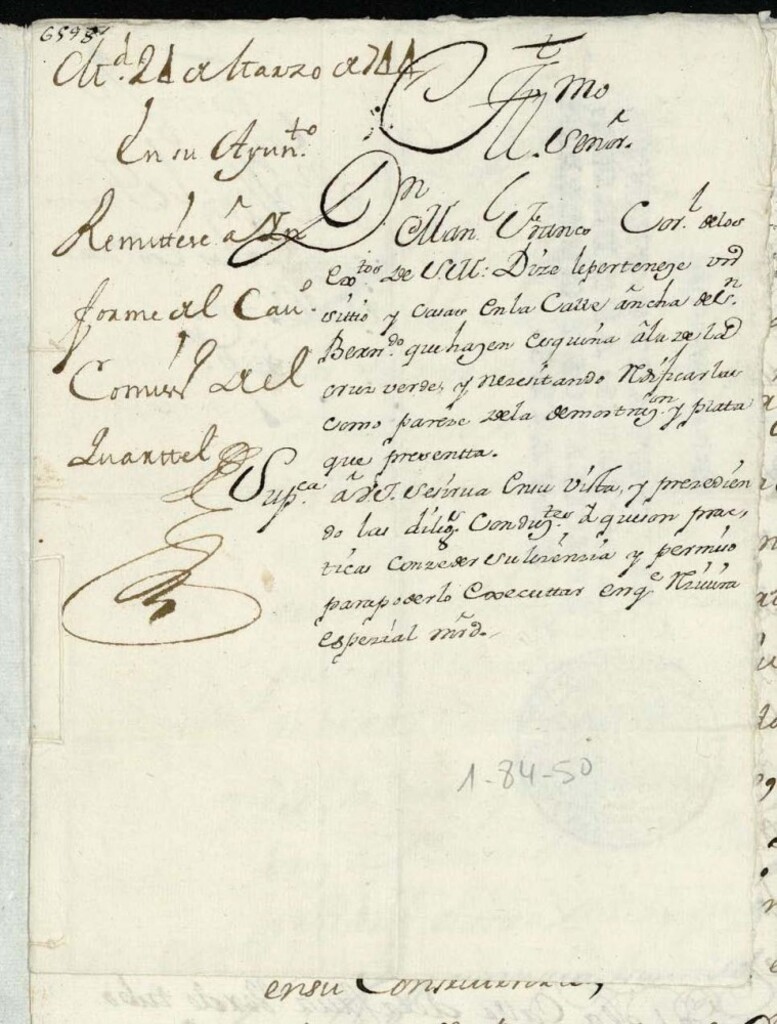 6598
M.d 21 de Marzo de 1711
En su Ayun.to
Remittese â In
forme al Cav.o
Comiss.o del
Quarttel
Ill.mo
Señor.
Dn Man.l Franco Cor.l de los
Ex.tos de S.M: Dize le perteneze un
sittio y casas en la Calle âncha de Sn.
Bern.do que hazen esquina â la de la
cruz verde, y nezesitando Redificarlas
como pareze de la demostraz.on y planta
que presentta.
Sup.ca â V.I. se sirva en su vista, y prezedien
do las dilig.s Conduz.tes â que son prac,
ticas conzeder su lizenzia y permiso
para poderlo executtar en q.e Rezivira
espezial mrd.
1-84-50
en su Conse